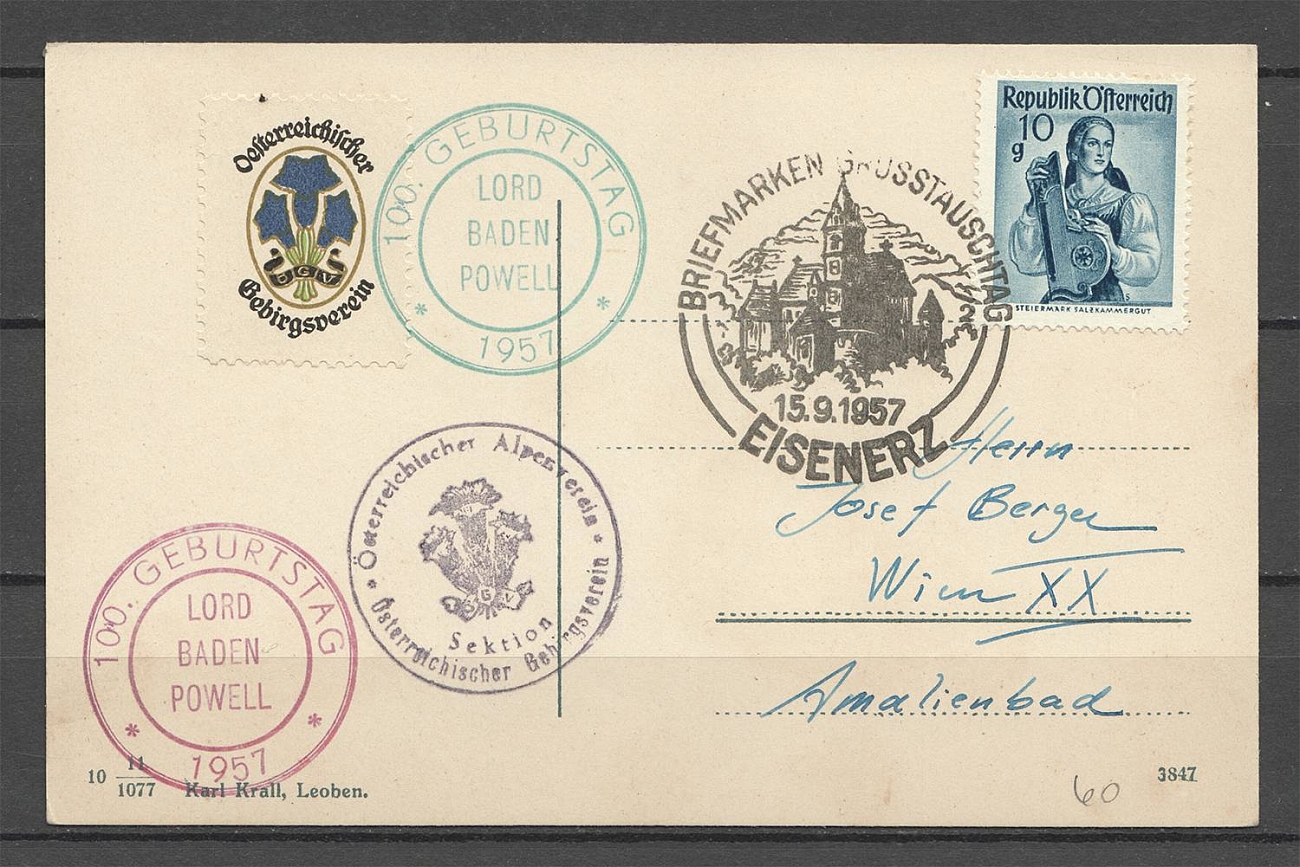 Oesterreichischer
ÖGV
Gebirgsverein
100. GEBURTSTAG
LORD
BADEN
POWELL
* 1957 *
BRIEFMARKEN GROSSTAUSCHTAG
15.9.1957
EISENERZ
Republik Österreich
10
g
STEIERMARK SALZKAMMERGUT
Österreichischer Alpenverein
ÖGV
Sektion
Österreichischer Gebirgsverein
Herrn
Josef Berger
Wien XX
Amalienbad
100. GEBURTSTAG
LORD
BADEN
POWELL
* 1957 *
10 11/1077 Karl Krall, Leoben.
3847
60